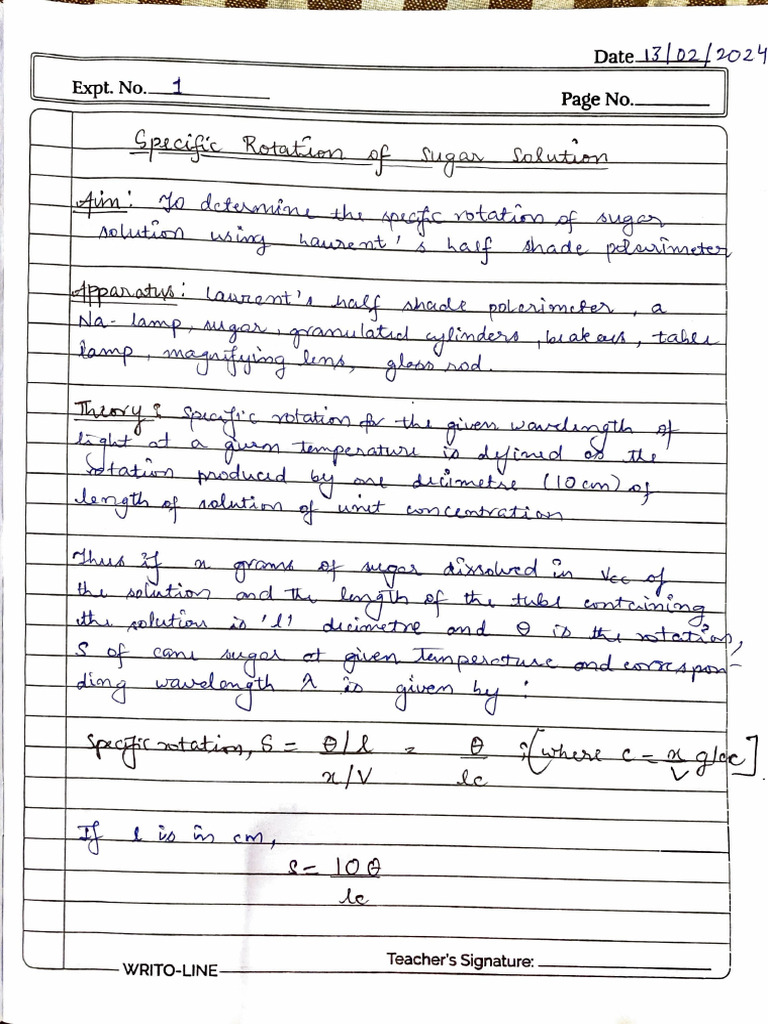 Date 13/02/2024
Expt. No. 1
Page No.
Specific Rotation of sugar solution
Aim: To determine the specfic rotation of sugar
solution using Laurent's half shade polarimeter
Apparatus: Laurent's half shade polarimeter, a
Na-lamp, sugar, granulated cylinders, beakers, table
lamp, magnifying lens, glass rod.
Theory: Specific rotation for the given wavelength of
light at a given temperature is defined as the
rotation produced by one decimetre (10 cm) of
length of solution of unit concentration
Thus if x grams of sugar dissolved in Vcc of
the solution and the length of the tube containing
the solution is 'l' decimetre and θ is the rotation,
S of cane sugar at given temperature and correspon-
ding wavelength λ is given by:
Specific rotation, S = θ/l / x/V = θ / lc ; [where c = x/V g/cc]
If l is in cm,
S = 10θ / lc
WRITO-LINE
Teacher's Signature: